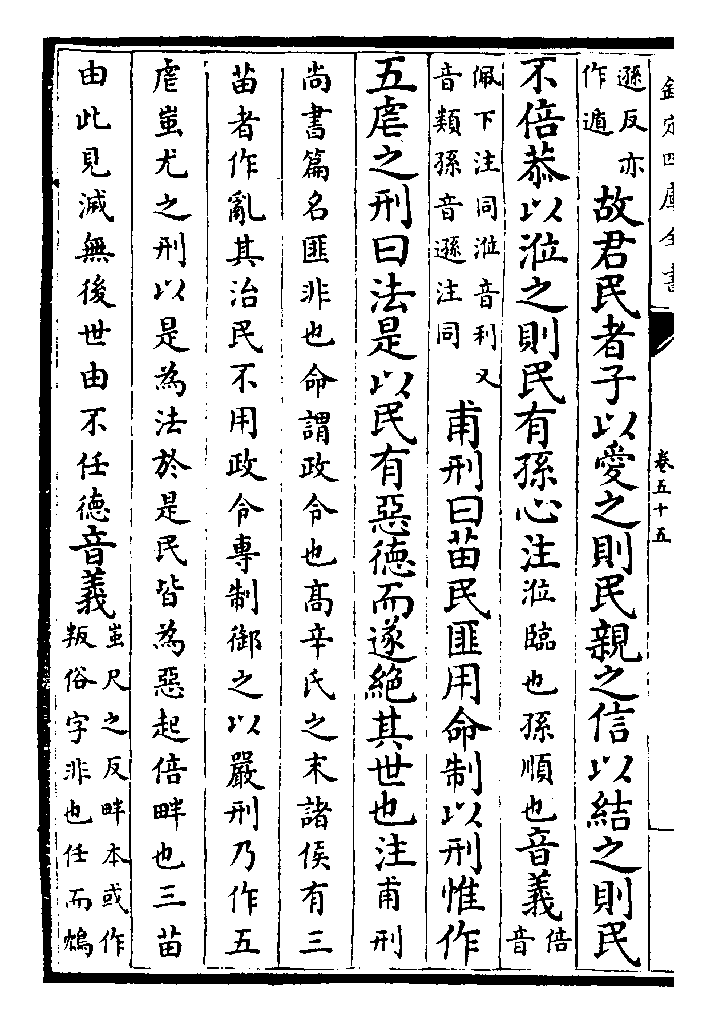 欽定四庫全書
卷五十五
遜反亦
作遁
故君民者子以愛之則民親之信以結之則民
不倍恭以涖之則民有孫心注涖臨也孫順也音義倍
音
佩下注同涖音利又
音類孫音遜注同
甫刑曰苗民匪用命制以刑惟作
五虐之刑曰法是以民有惡德而遂絶其世也注甫刑
尚書篇名匪非也命謂政令也髙辛氏之末諸侯有三
苗者作亂其治民不用政令專制御之以嚴刑乃作五
虐蚩尤之刑以是為法於是民皆為惡起倍畔也三苗
由此見滅無後世由不任德音義
蚩尺之反畔本或作
叛俗字非也任而鴆